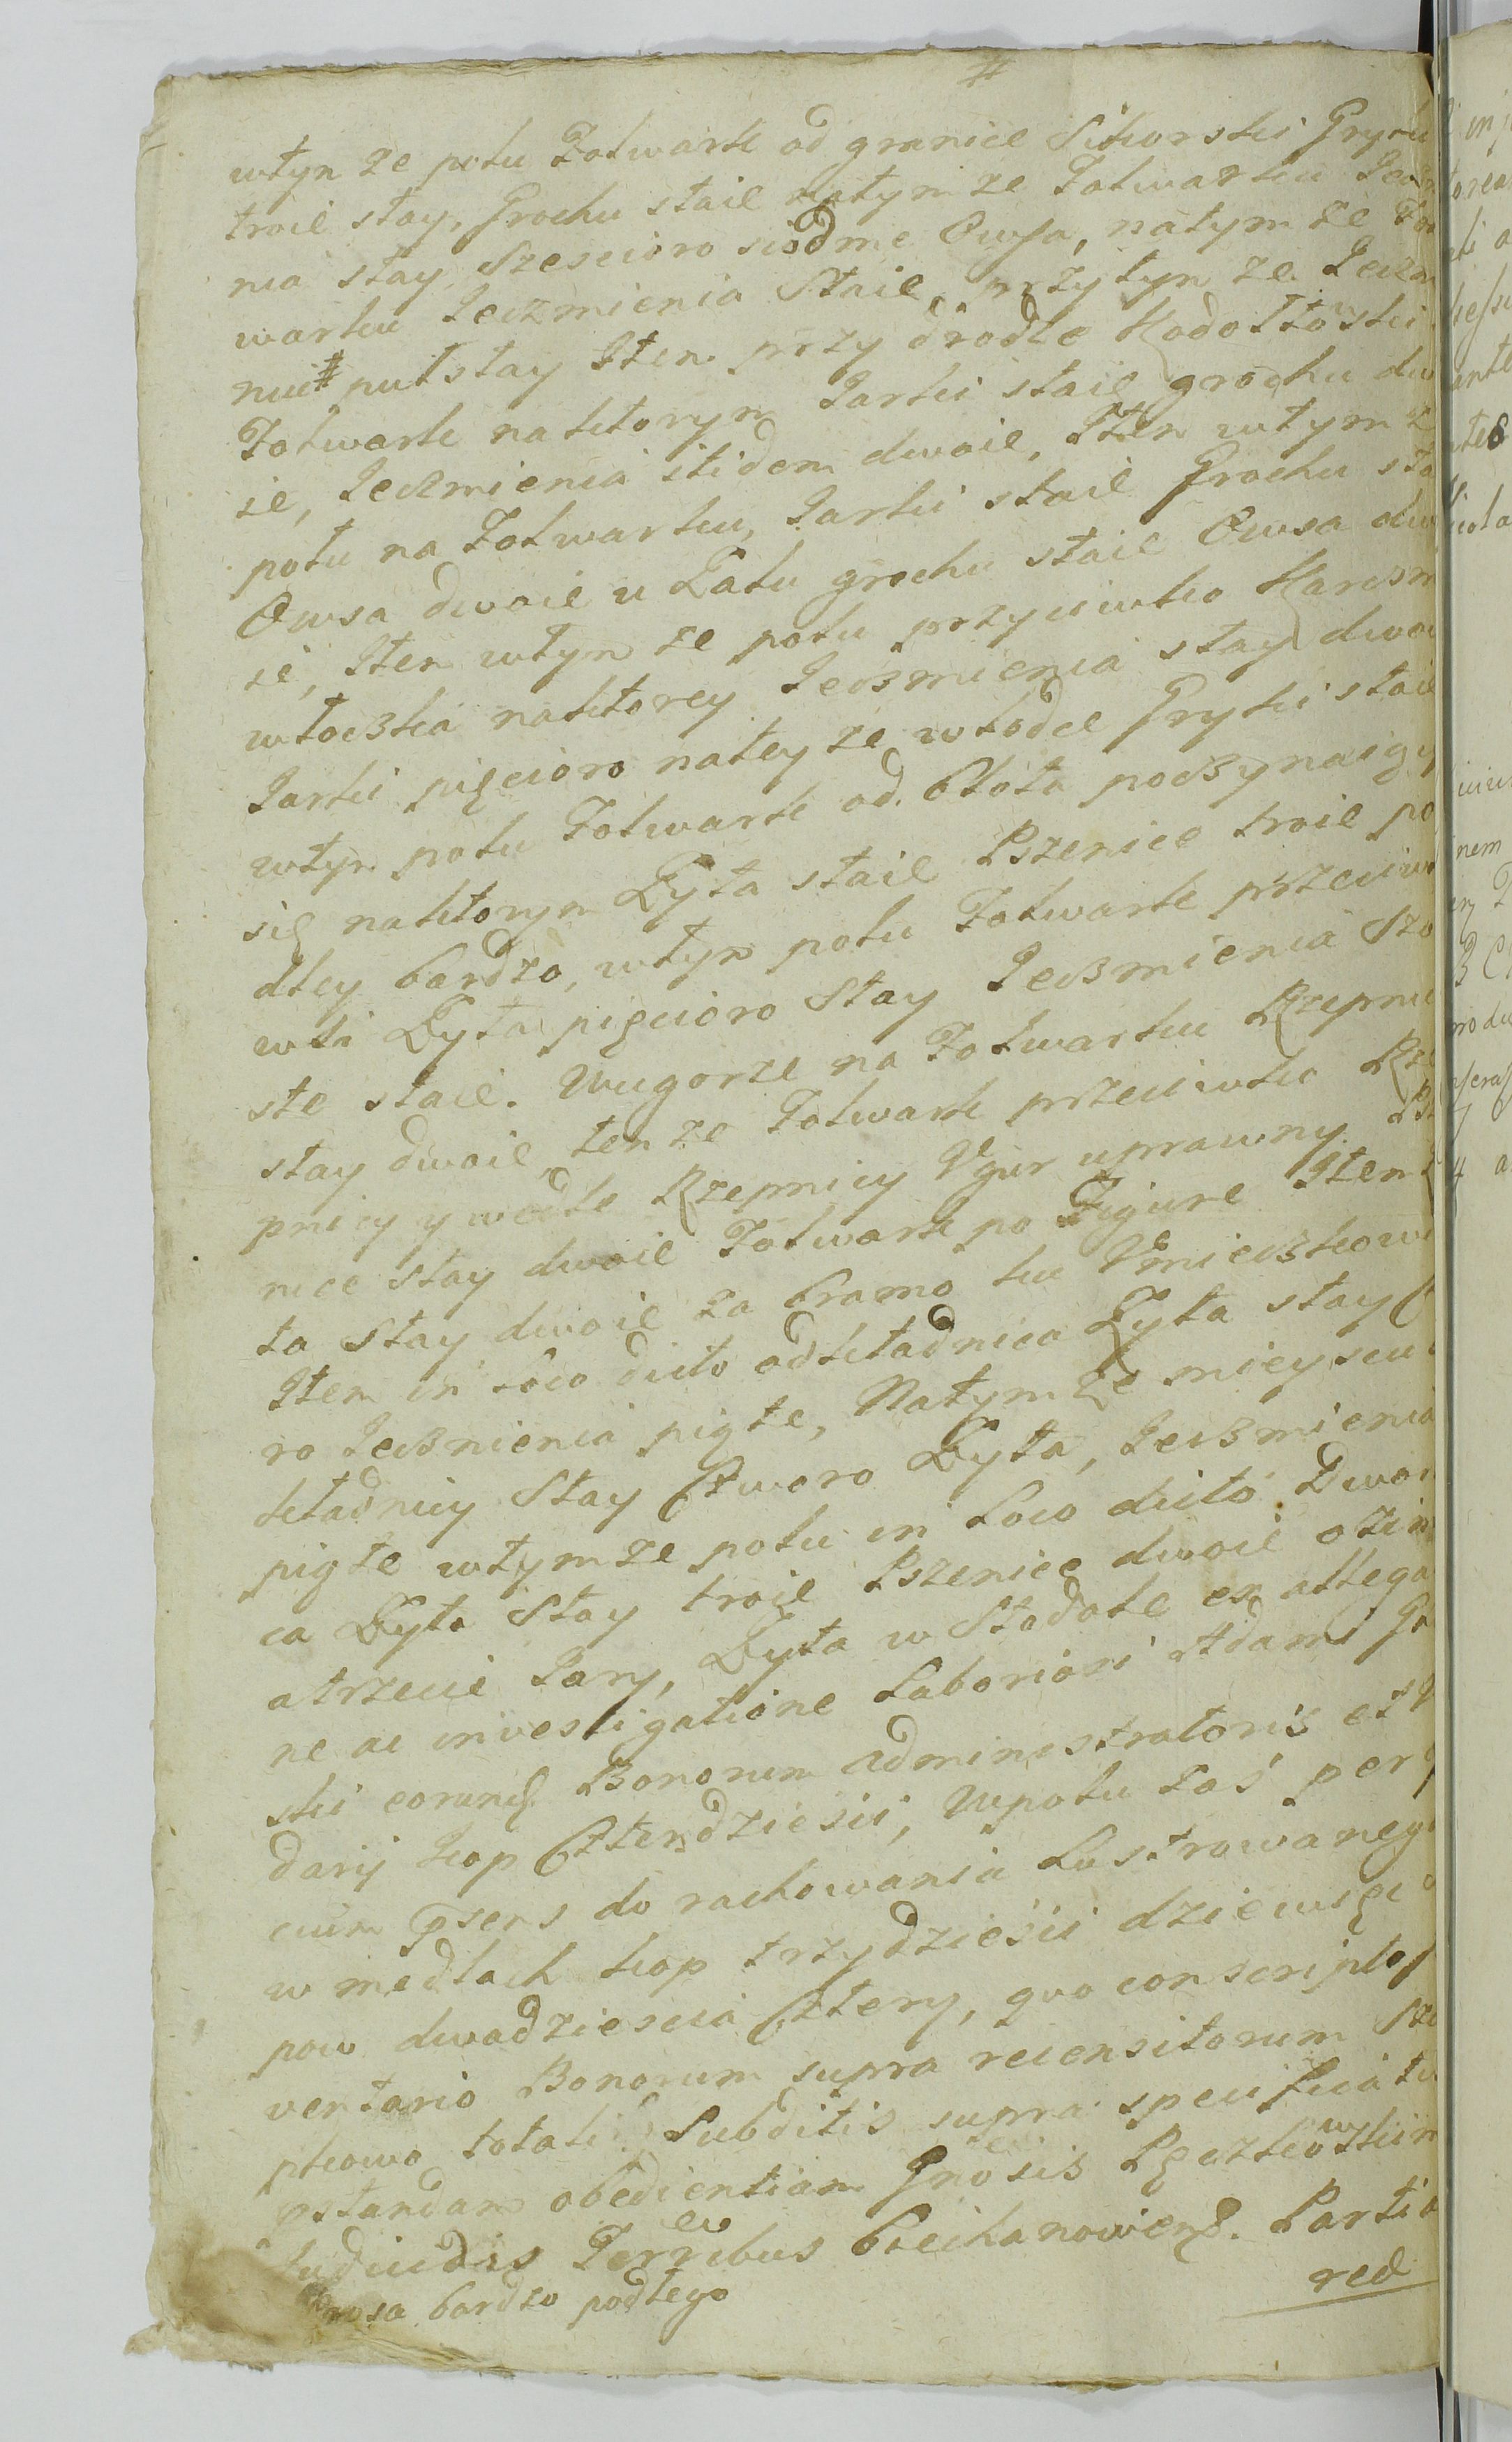 wtyn ze polu Folwark od granice Sitworski Gryki
troie stay, Grochu staie natym ze Folwarku Jęcz
nia stay Szescioro siodme Owsa, natym ze Fol
warku Jęczmienia Staie, przytyn ze Jęczm
nui # pułstay Iten przy drodle Kodołtowski
Folwark naktoryn Jarki staie grochu dw
ie, Jęczmienia itidem dwoie, Iten wtym z
polu na Folwarku, Jarki staie Grochu sta
Owsa dwoie u Łatu grochu staie Owsa dw
ie, Iten wtyn ze polu przyciwko Karczm
włoczka naktorey Jęczmienia stay dwo
Jarki pięcioro natey ze włodce Gryki staie
wtyn polu Folwark od błota poczynaiąc
się naktoryn Zyta staie Pszenice troie po
dłey bardzo, wtyn polu Folwark przeciw
wki Zyta pięcioro Stay Jęczmienia Szo
ste staie. Wugorze na Folwarku Rzepnic
stay dwoie, ten ze Folwark przeciwko Rze
pnicy y wedle Rzepnicy Vgur uprawny Psze
nice stay dwoie Folwark po Figure Iten Zy
ta Stay dwoie za bramo ku Vnieczkowi
Iten in Loco dicto odkładnica Zyta stay C
ro Jęczmienia piąte, Natym ze mieyscu
kładnicy Stay Cztworo Zyta, Jęczmienia
piąte wtym ze polu in Loco dicto Dwor
ca Zyta Stay troie Pszenice dwoie ozim
a trzecie Jary, Zyta w Stodole ex allega
ne ac investigatione Laboriosi Adami Go
ski eorund. Bonorum administratoris et
darij kop Czterdziesci, Wpolu zaś per
cium Psens do rachowania Lustrowanego
w mędlach kop trzydzieści dziewięć
pow dwadziescia Cztery, quo conscripto
ventario Bonorum supra recensitorum Szc
pkowo totali, Subditis supra specificatu
pstandam obedientiam Gnosis Pęczkowskim
Judicidis Terrebus Ciechanowiens. Partio
Prosa bardzo podłego
red